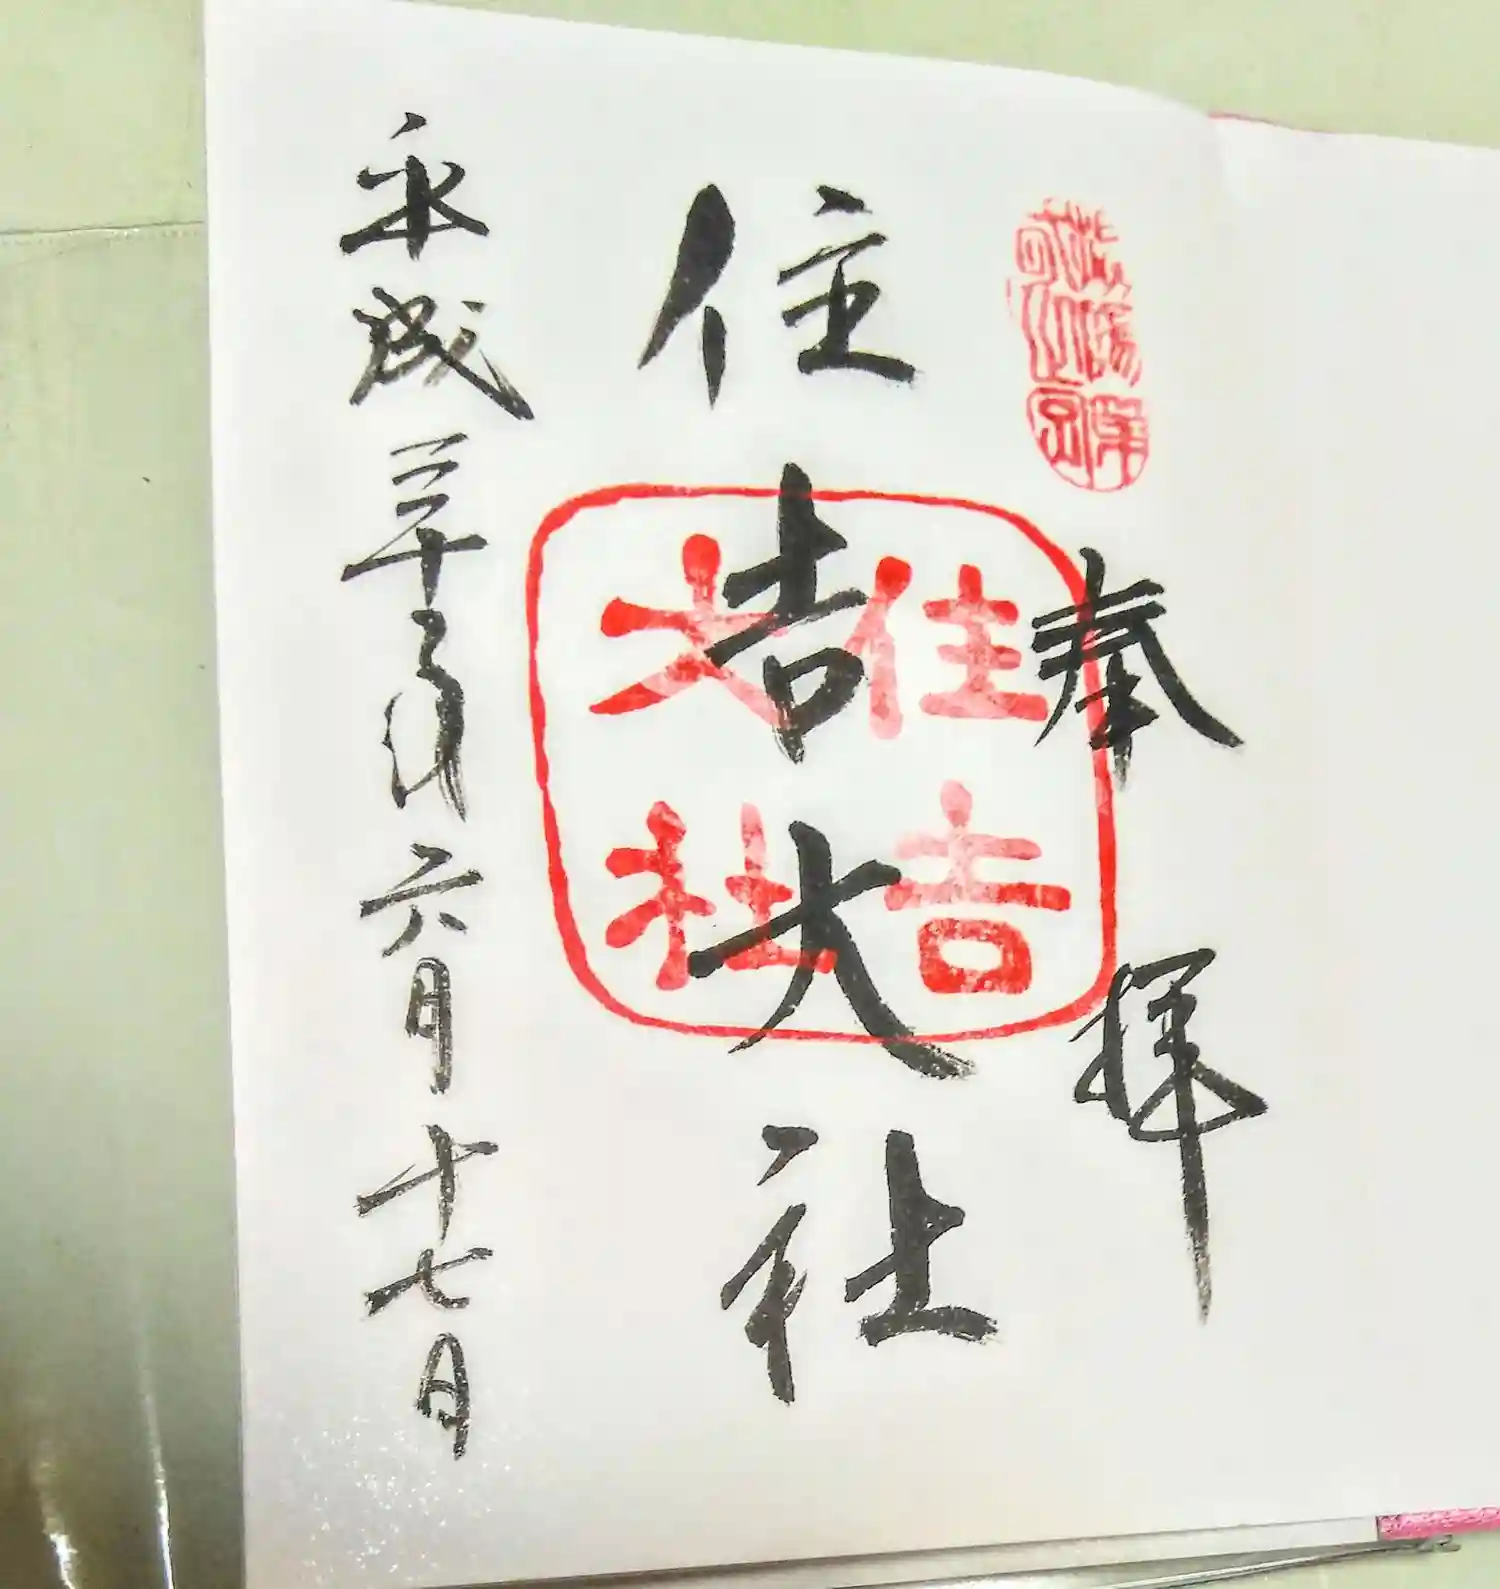 奉拝
住吉大社
住吉
大社
平成
六月十七日